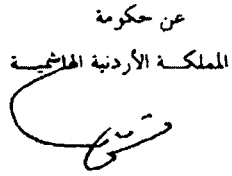 عن حكومة
المملكة الأردنية الهاشمية